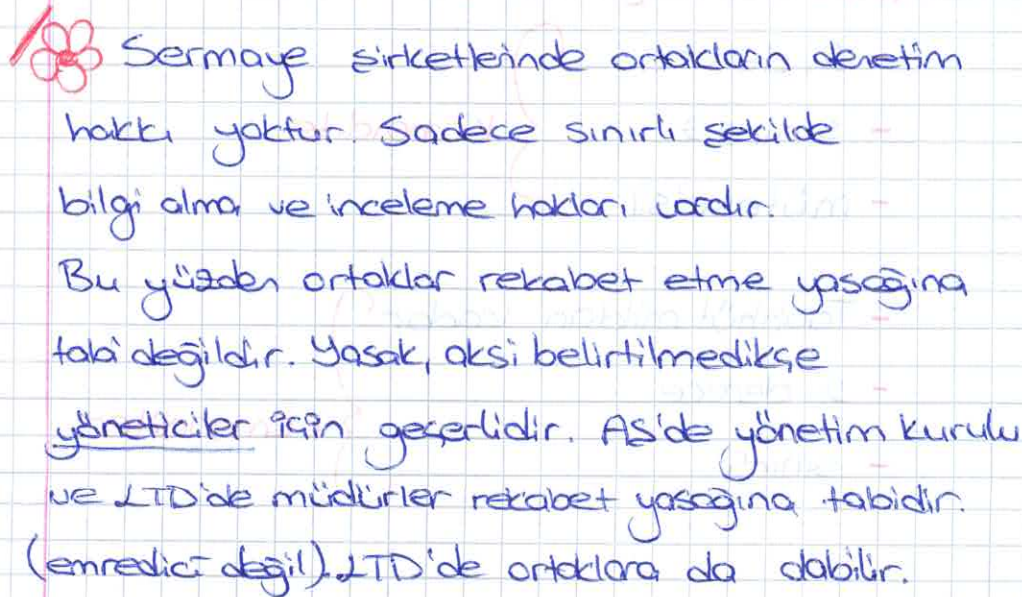 Sermaye şirketlerinde ortakların denetim
hakkı yoktur. Sadece sınırlı şekilde
bilgi alma ve inceleme hakları vardır.
Bu yüzden ortaklar rekabet etme yasağına
tabi değildir. Yasak, aksi belirtilmedikçe
yöneticiler için geçerlidir. AŞ'de yönetim kurulu
ve LTD'de müdürler rekabet yasağına tabidir.
(emredici değil). LTD'de ortaklara da olabilir.